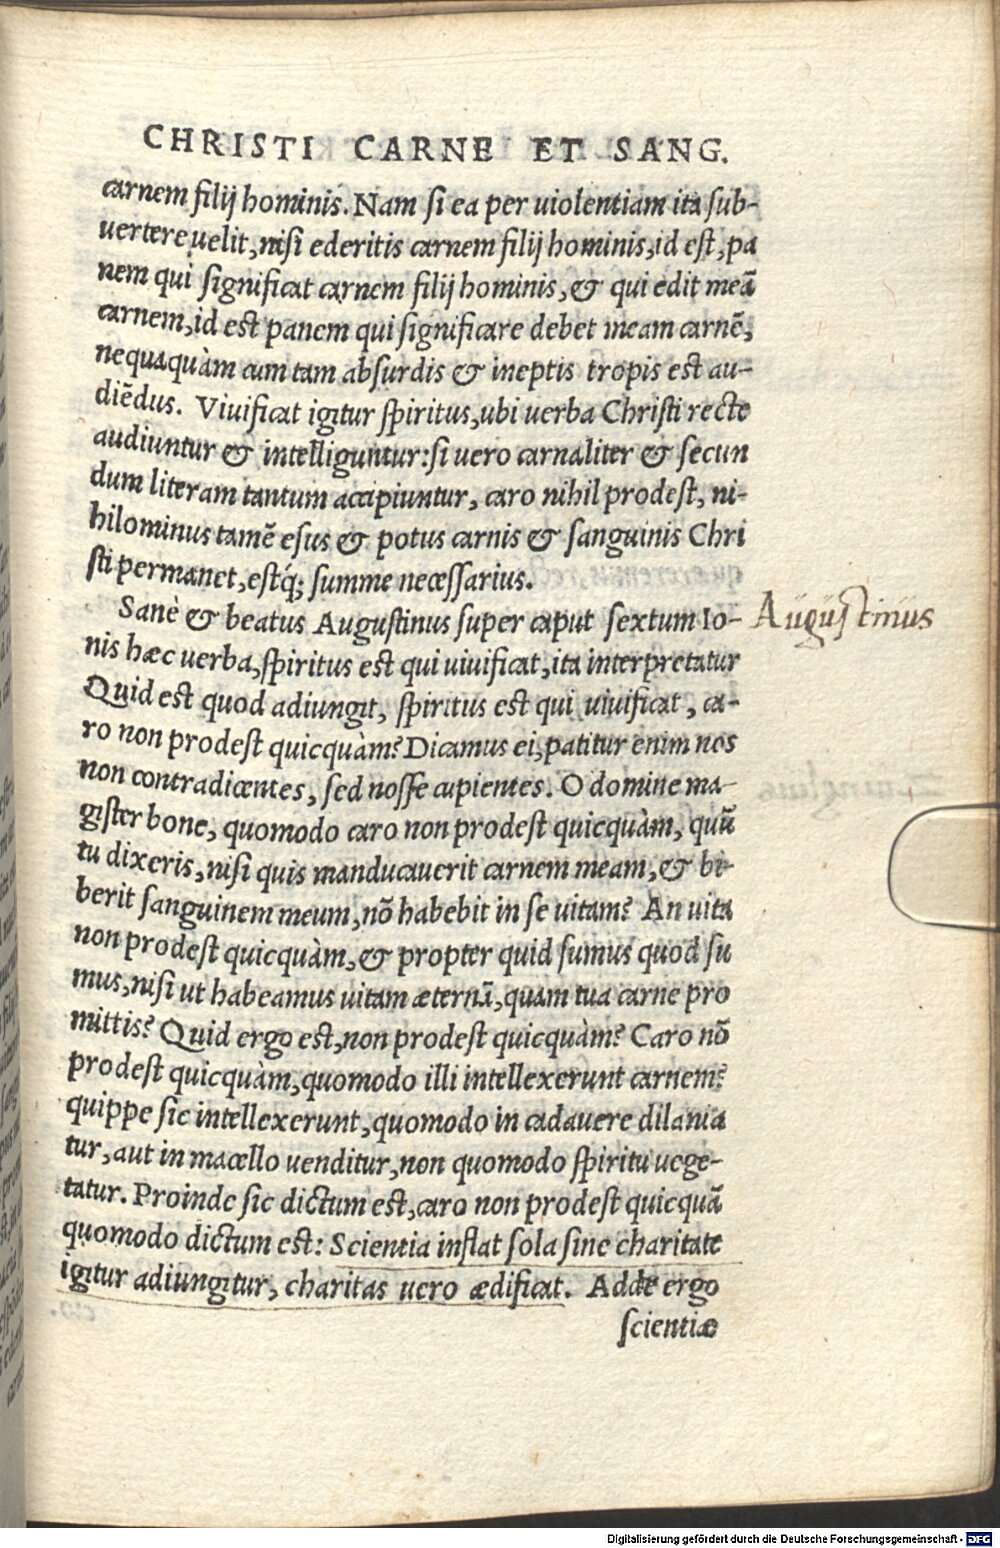 CHRISTI CARNE ET SANG.
carnem filij hominis. Nam si ea per uiolentiam ita sub-
uertere uelit, nisi ederitis carnem filij hominis, id est, pa
nem qui significat carnem filij hominis, & qui edit meā
carnem, id est panem qui significare debet meam carnē,
nequaquàm cum tam absurdis & ineptis tropis est au-
diēdus. Viuificat igitur spiritus, ubi uerba Christi recte
audiuntur & intelliguntur: si uero carnaliter & secun
dum literam tantum accipiuntur, caro nihil prodest, ni-
hilominus tamē esus & potus carnis & sanguinis Chri
sti permanet, estq́; summe necessarius.
Sanè & beatus Augustinus super caput sextum Io-
Augustinus
nis hæc uerba, spiritus est qui uiuificat, ita interpretatur
Quid est quod adiungit, spiritus est qui uiuificat, ca-
ro non prodest quicquàm? Dicamus ei, patitur enim nos
non contradicentes, sed nosse cupientes. O domine ma-
gister bone, quomodo caro non prodest quicquàm, quū
tu dixeris, nisi quis manducauerit carnem meam, & bi-
berit sanguinem meum, nō habebit in se uitam? An uita
non prodest quicquàm, & propter quid sumus quod su
mus, nisi ut habeamus uitam æternā, quam tua carne pro
mittis? Quid ergo est, non prodest quicquàm? Caro nō
prodest quicquàm, quomodo illi intellexerunt carnem?
quippe sic intellexerunt, quomodo in cadauere dilania
tur, aut in macello uenditur, non quomodo spiritu uege-
tatur. Proinde sic dictum est, caro non prodest quicquā
quomodo dictum est: Scientia inflat sola sine charitate
igitur adiungitur, charitas uero ædificat. Adde ergo
scientiæ
Digitalisierung gefördert durch die Deutsche Forschungsgemeinschaft - DFG